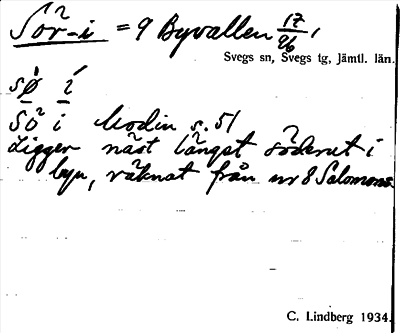 Sör-i = 9 Byvallen 17/96
Svegs sn, Svegs tg, Jämtl. län.
sø̀ í
Sö i Modin s. 51
Ligger näst längst söderut i
byn, räknat från nr 8 Salomons
C. Lindberg 1934.